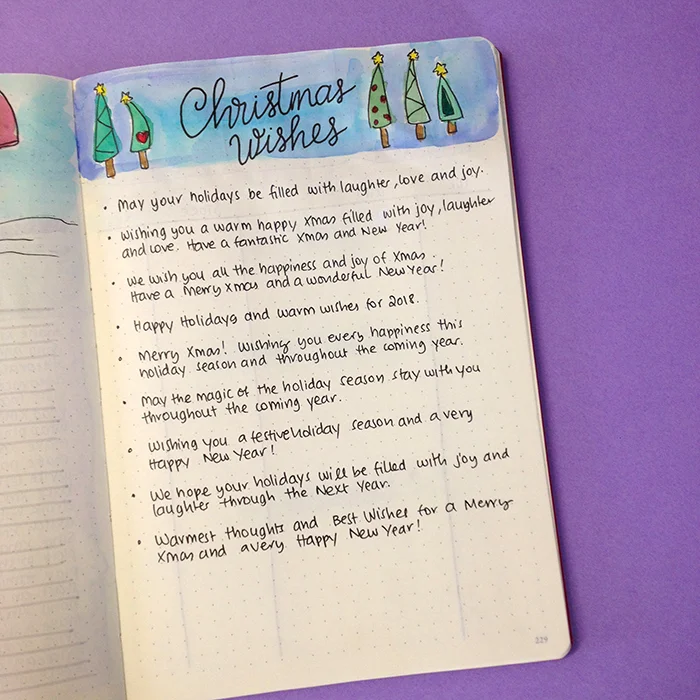 Christmas
Wishes
• May your holidays be filled with laughter, love and joy.
• Wishing you a warm happy Xmas filled with joy, laughter
and love. Have a fantastic Xmas and New Year!
• We wish you all the happiness and joy of Xmas.
Have a Merry Xmas and a wonderful New Year!
• Happy Holidays and warm wishes for 2018.
• Merry Xmas! Wishing you every happiness this
holiday season and throughout the coming year.
• May the magic of the holiday season stay with you
throughout the coming year.
• Wishing you a festive holiday season and a very
Happy New Year!
• We hope your holidays will be filled with joy and
laughter through the Next Year.
• Warmest thoughts and Best Wishes for a Merry
Xmas and a very Happy New Year!